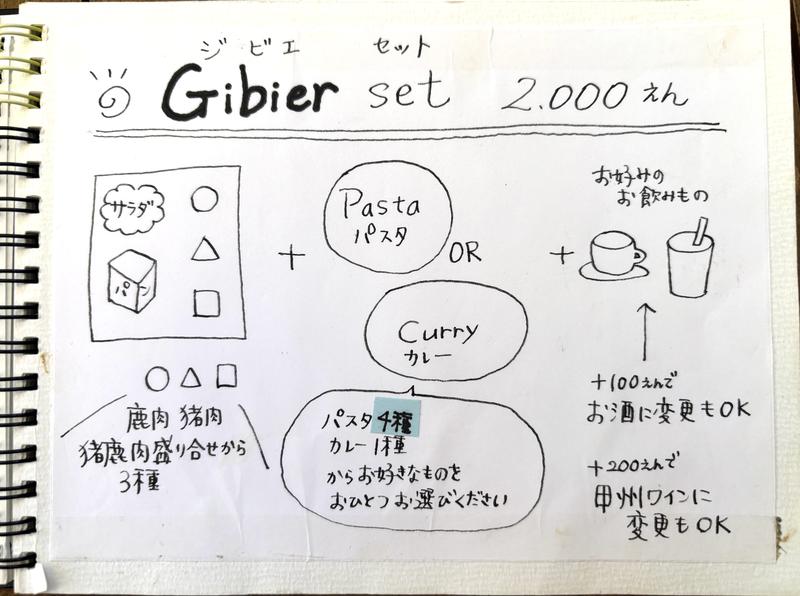 ジビエ セット
Gibier set 2.000えん
サラダ
パン
+
Pasta
パスタ
OR
Curry
カレー
+
お好みの
お飲みもの
鹿肉 猪肉
猪鹿肉盛り合せから
3種
パスタ4種
カレー1種
からお好きなものを
おひとつお選びください
+100えんで
お酒に変更もOK
+200えんで
甲州ワインに
変更もOK